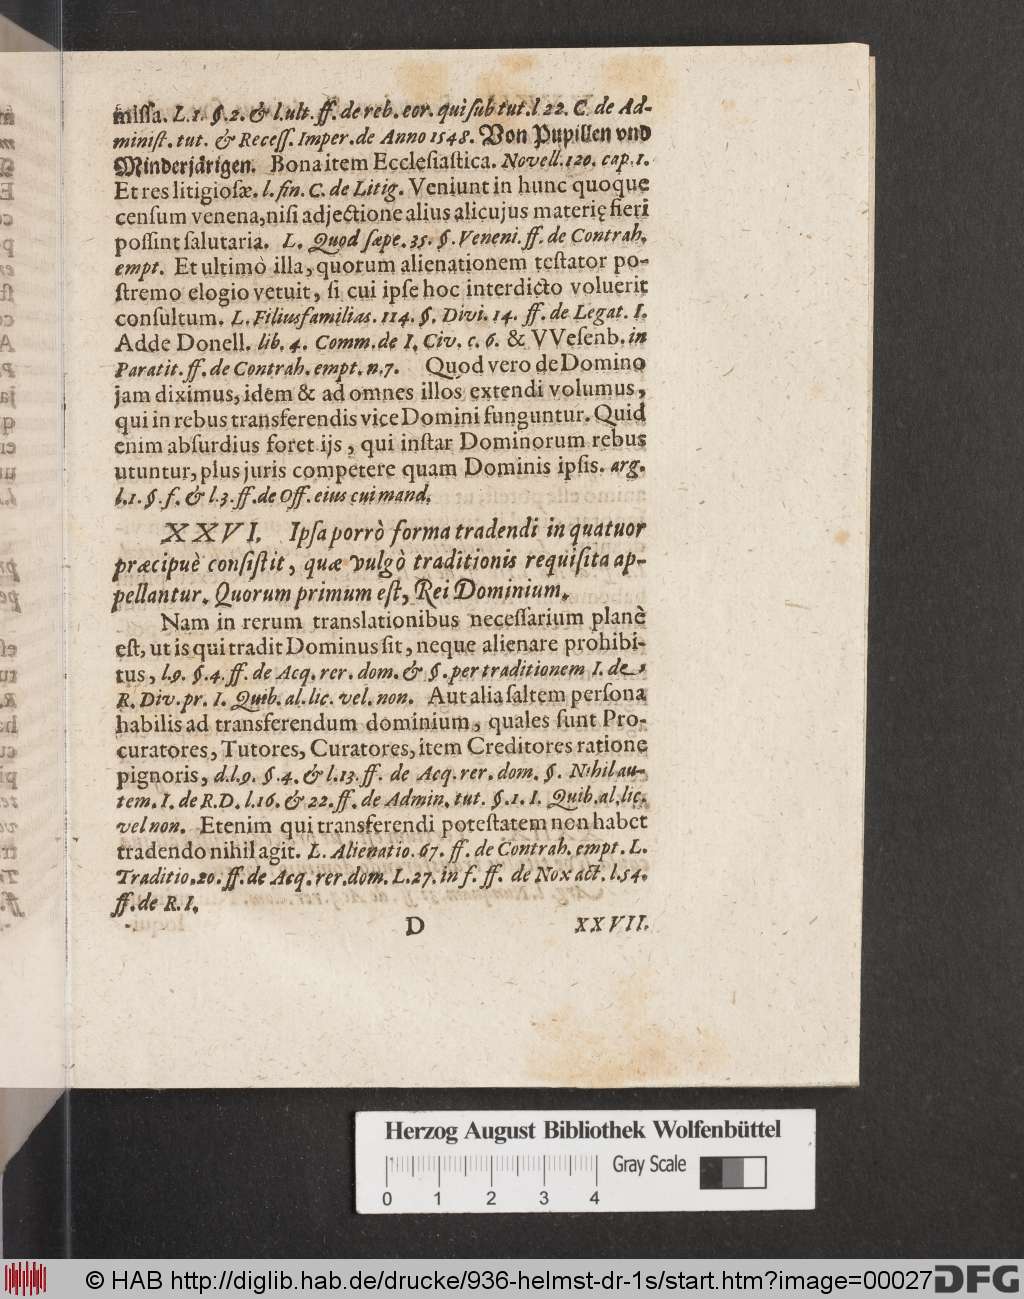 missa. L. 1. §. 2. & l. ult. ff. de reb. eor. qui sub tut. l 22. C. de Ad-
minist. tut. & Recess. Imper. de Anno 1548. Von Pupillen vnd
Minderjärigen. Bona item Ecclesiastica. Novell. 120. cap. 1.
Et res litigiosæ. l. fin. C. de Litig. Veniunt in hunc quoque
censum venena, nisi adjectione alius alicujus materię fieri
possint salutaria. L. Quod sæpe. 35. §. Veneni. ff. de Contrah.
empt. Et ultimò illa, quorum alienationem testator po-
stremo elogio vetuit, si cui ipse hoc interdicto voluerit
consultum. L. Filiusfamilias. 114. §. Divi. 14. ff. de Legat. I.
Adde Donell. lib. 4. Comm. de I. Civ. c. 6. & VVesenb. in
Paratit. ff. de Contrah. empt. n. 7. Quod vero de Domino
jam diximus, idem & ad omnes illos extendi volumus,
qui in rebus transferendis vice Domini funguntur. Quid
enim absurdius foret ijs, qui instar Dominorum rebus
utuntur, plus juris competere quam Dominis ipsis. arg.
l. 1. §. f. & l. 3. ff. de Off. eius cui mand.
XXVI. Ipsa porrò forma tradendi in quatuor
præcipuè consistit, quæ vulgò traditionis requisita ap-
pellantur. Quorum primum est, Rei Dominium.
Nam in rerum translationibus necessarium planè
est, ut is qui tradit Dominus sit, neque alienare prohibi-
tus, l. 9. §. 4. ff. de Acq. rer. dom. & §. per traditionem I. de
R. Div. pr. I. Quib. al. lic. vel. non. Aut alia saltem persona
habilis ad transferendum dominium, quales sunt Pro-
curatores, Tutores, Curatores, item Creditores ratione
pignoris, d. l. 9. §. 4. & l. 13. ff. de Acq. rer. dom. §. Nihil au-
tem. I. de R. D. l. 16. & 22. ff. de Admin. tut. §. 1. I. Quib. al. lic.
vel non. Etenim qui transferendi potestatem non habet
tradendo nihil agit. L. Alienatio. 67. ff. de Contrah. empt. L.
Traditio. 20. ff. de Acq. rer. dom. L. 27. in f. ff. de Nox act. l. 54.
ff. de R. I.
D XXVII.
Herzog August Bibliothek Wolfenbüttel
Gray Scale
0 1 2 3 4
© HAB http://diglib.hab.de/drucke/936-helmst-dr-1s/start.htm?image=00027
DFG